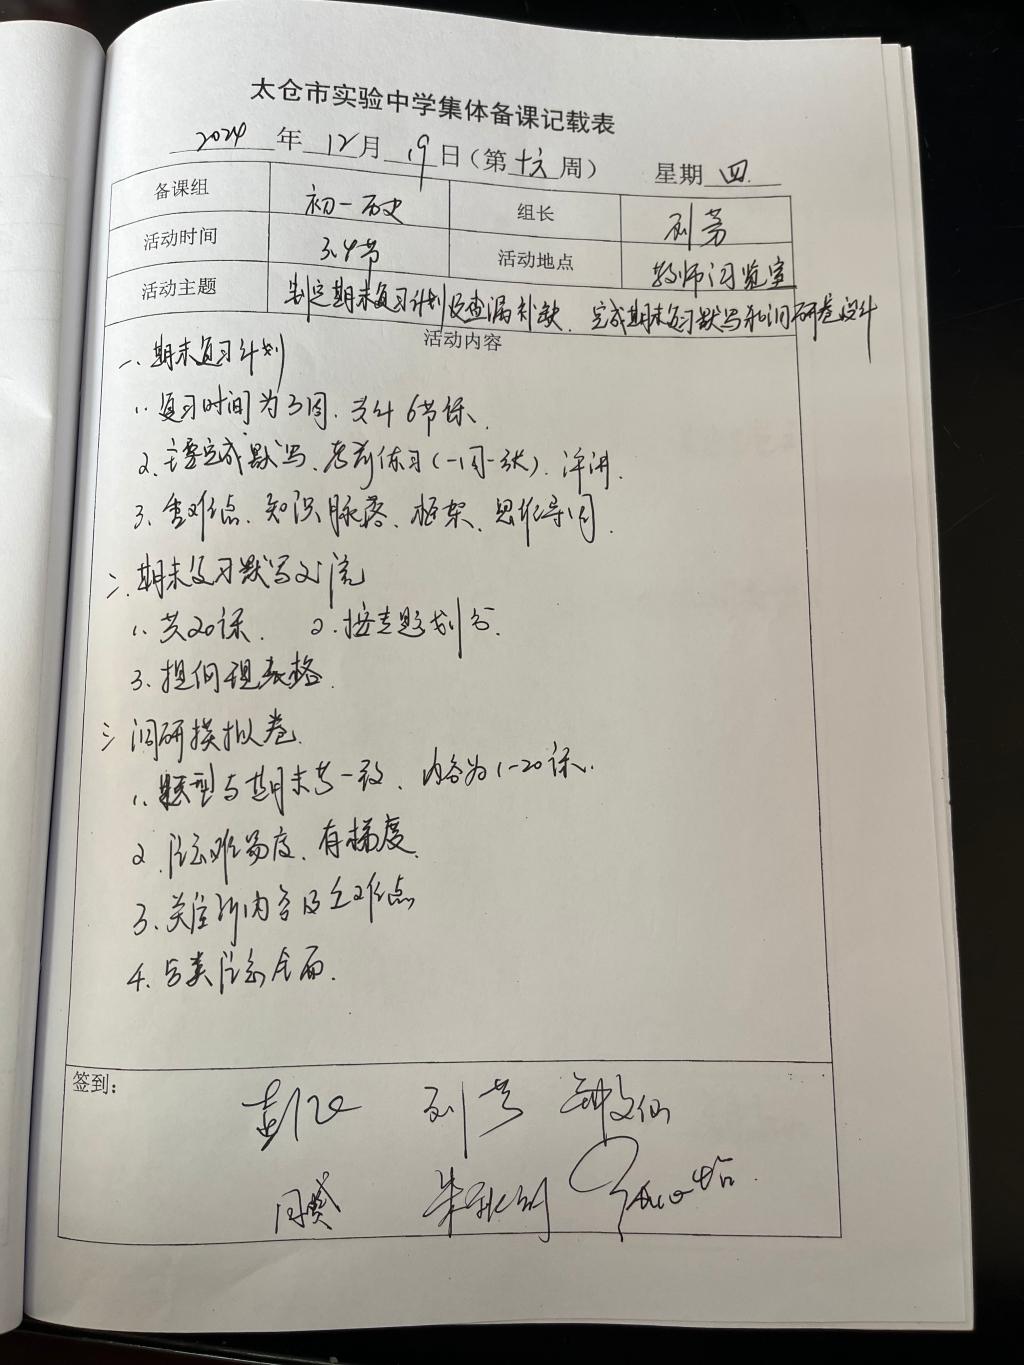 太仓市实验中学集体备课记载表
2024 年 12 月 19 日（第 十六 周） 星期 四
备课组 初一历史 组长 刘芳
活动时间 3.4节 活动地点 教师阅览室
活动主题 制定期末复习计划及查漏补缺、完成期末复习默写和调研卷设计
活动内容
一、期末复习计划
1、复习时间为3周、共计6节课、
2、主要完成默写、考前练习(一周一张)、评讲.
3、重难点、知识脉络、框架、思维导图.
二、期末复习默写交流
1、共20课. 2、按专题划分.
3、提供现表格.
三 调研模拟卷.
1、题型与期末考一致、内容为1-20课.
2、注意难易度、有梯度.
3、关注所内容及重难点
4、与类注意全面.
签到：
刘芳